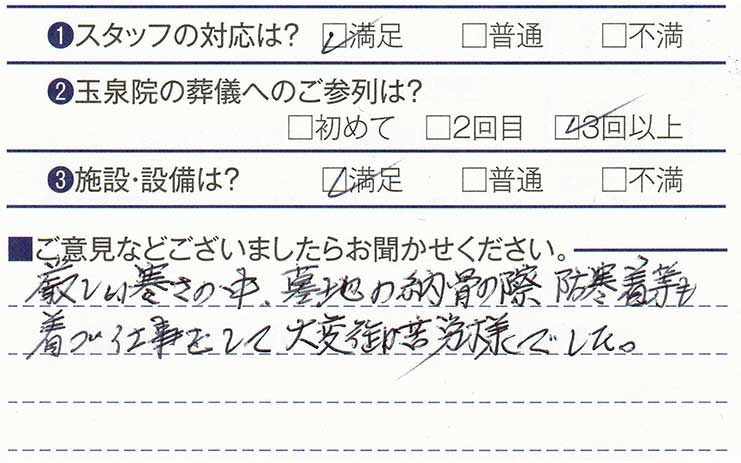 ❶スタッフの対応は? ☑満足 □普通 □不満
❷玉泉院の葬儀へのご参列は?
□初めて □2回目 ☑3回以上
❸施設・設備は? ☑満足 □普通 □不満
■ご意見などございましたらお聞かせください。
厳しい寒さの中、墓地の納骨の際 防寒着等も
着づ仕事をして 大変御苦労様でした。